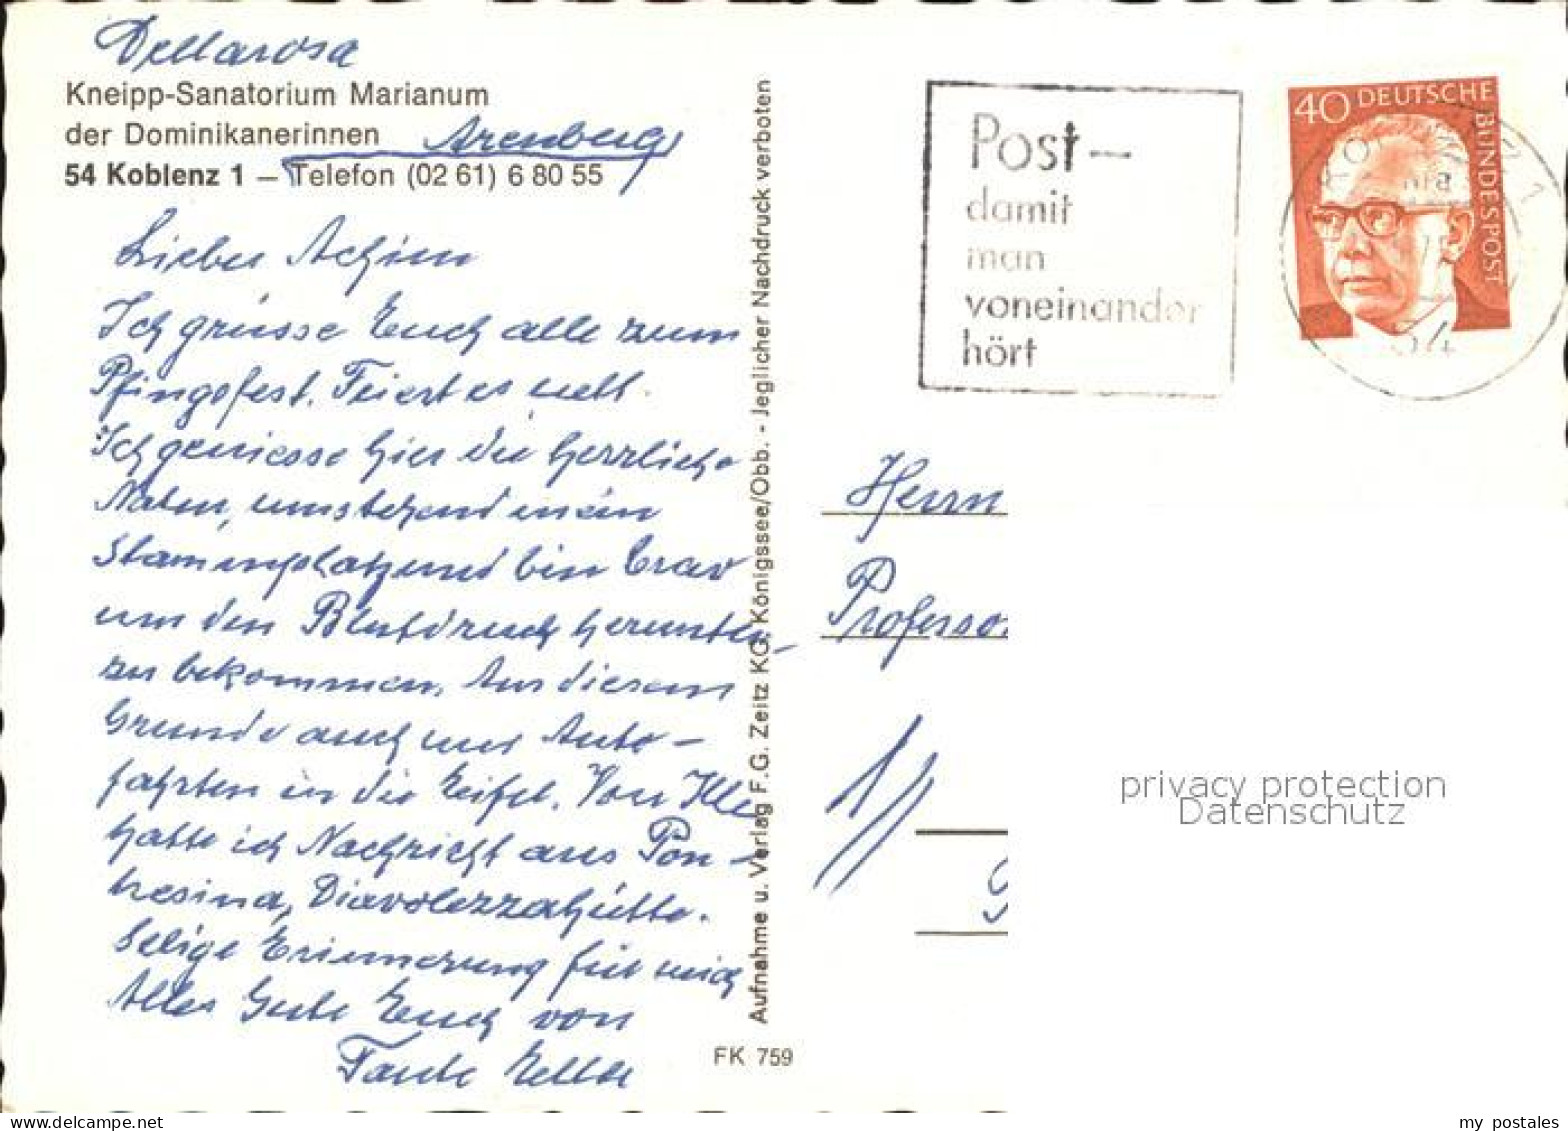 Dellarosa
Kneipp-Sanatorium Marianum
der Dominikanerinnen Arenberg
54 Koblenz 1 – Telefon (02 61) 6 80 55
Lieber Achim
Ich grüsse Euch alle zum
Pfingsfest. Feiert es nett.
Ich geniesse hier die herrliche
Natur, umstehend mein
Stammplatz und bin brav
um den Blutdruck herunter-
zu bekommen. Aus diesem
Grunde auch nur Auto-
fahrten in die Eifel. Von Ille
hatte ich Nachricht aus Pon-
tresina, Diavolezzahütte.
Selige Erinnerung für mich
Alles Gute Euch von
Tante
FK 759
Aufnahme u. Verlag F.G. Zeitz KG, Königssee/Obb. - Jeglicher Nachdruck verboten
Post –
damit
man
voneinander
hört
40 DEUTSCHE
BUNDESPOST
54
Herrn
Professo
privacy protection
Datenschutz
my postales